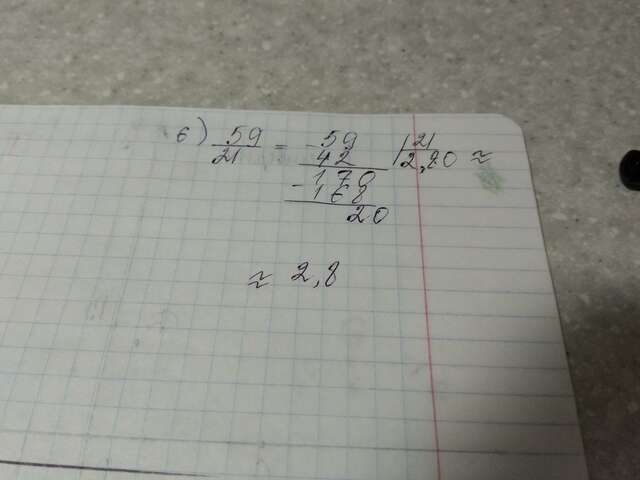 б) 59/21 = 59 | 21
- 42 | 2,80 ≈
170
- 168
20
≈ 2,8